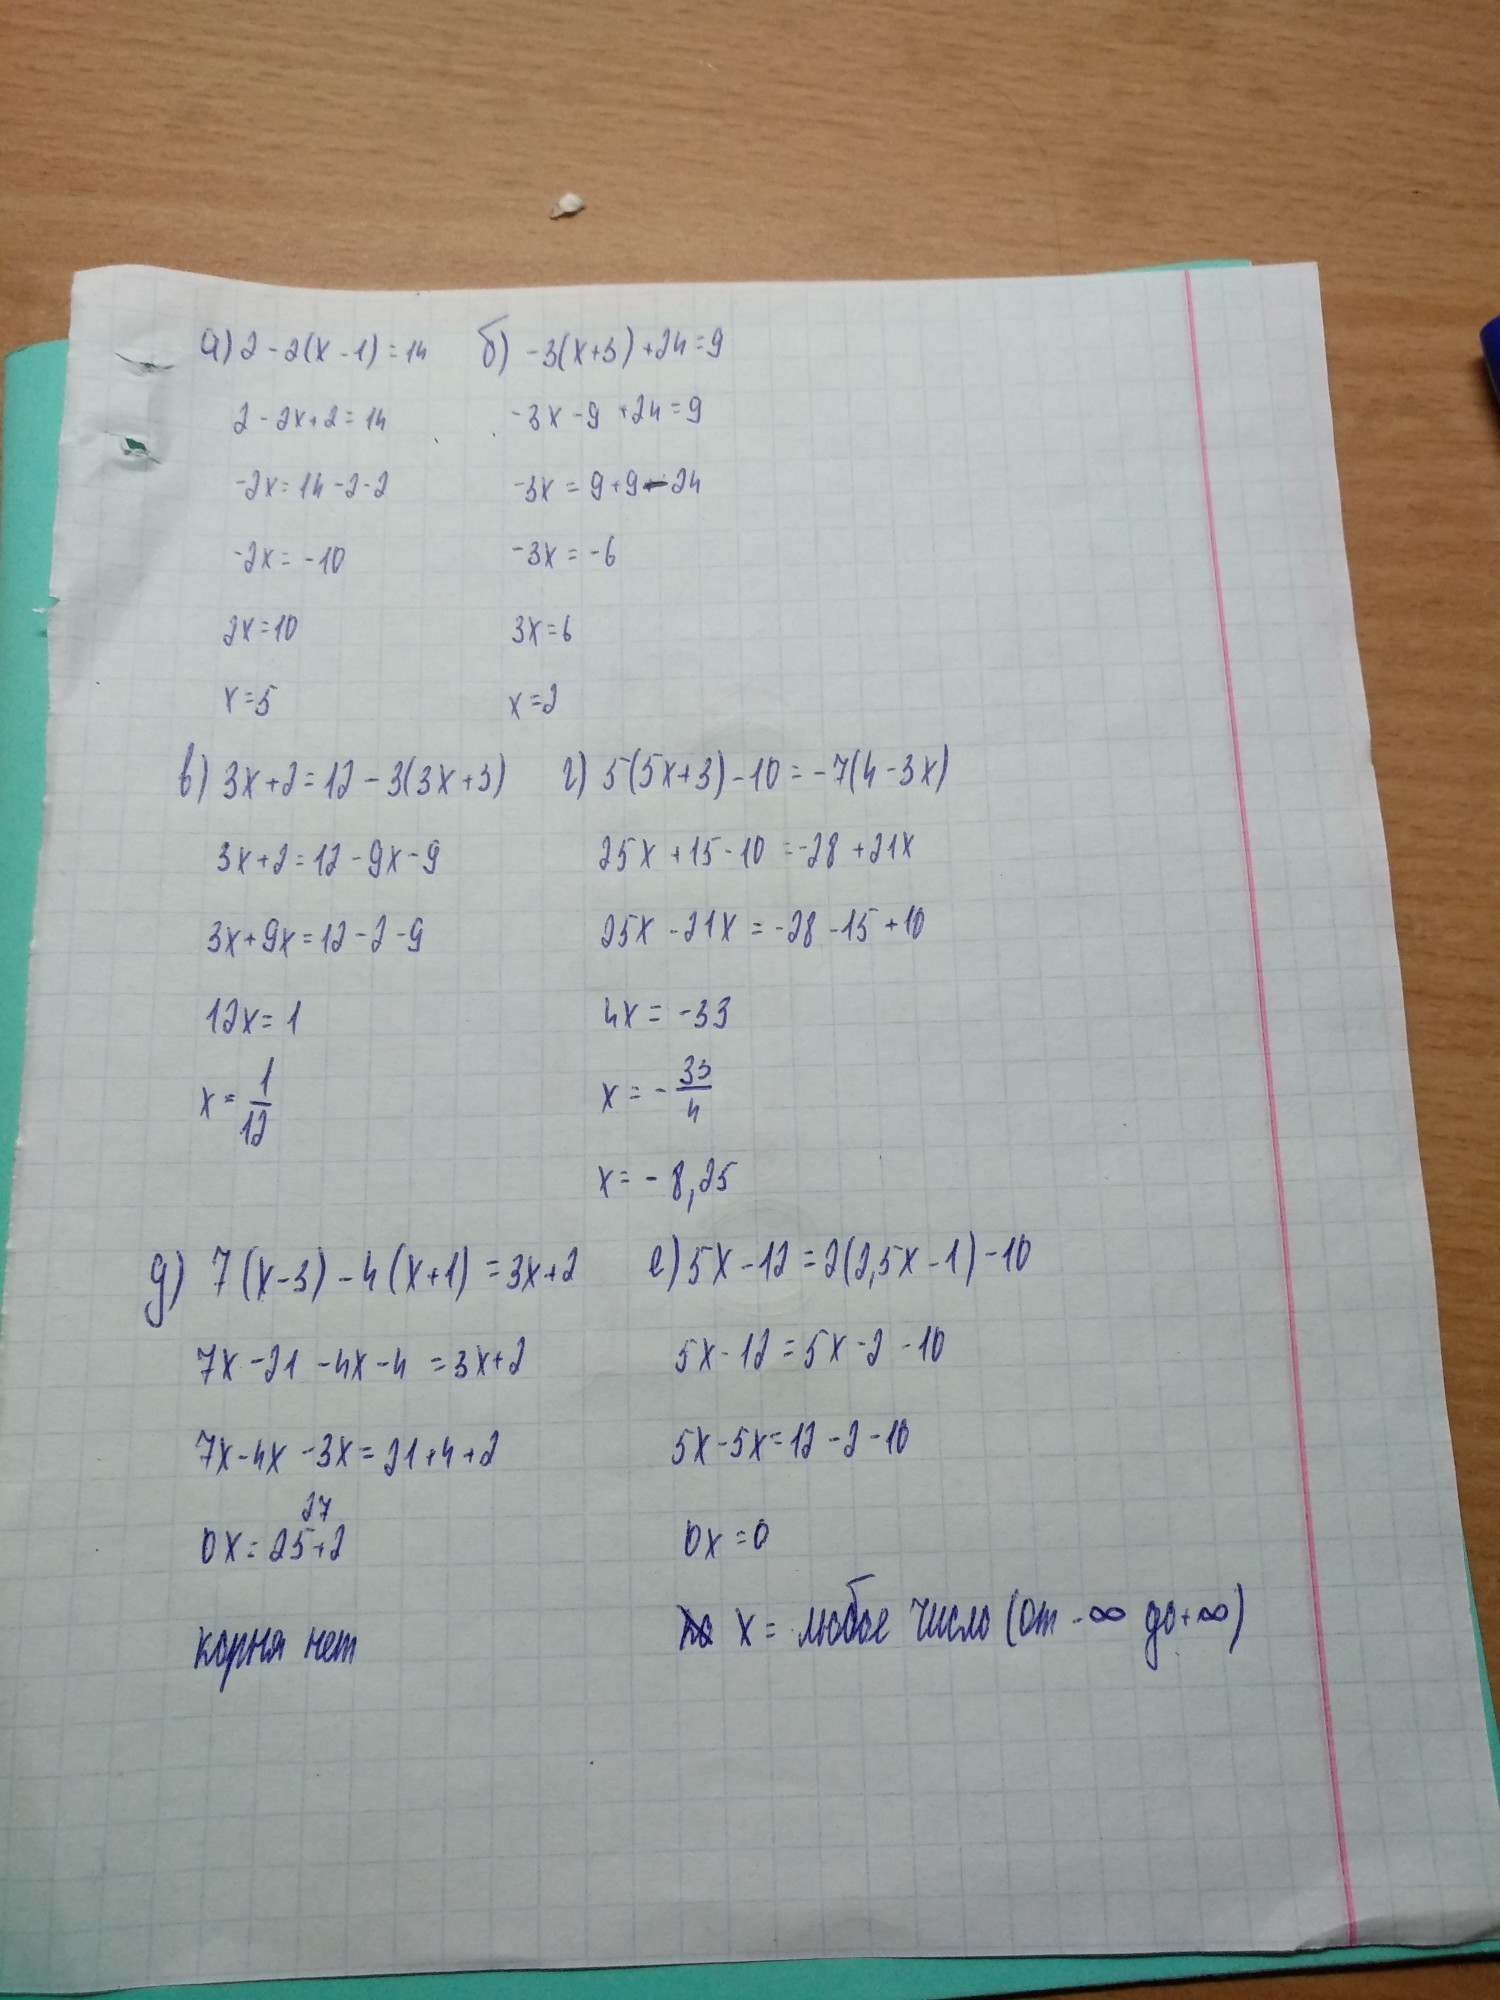 а) 2-2(x-1)=14
2-2x+2=14
-2x=14-2-2
-2x=-10
2x=10
x=5
б) -3(x+3)+24=9
-3x-9+24=9
-3x=9+9-24
-3x=-6
3x=6
x=2
в) 3x+2=12-3(3x+3)
3x+2=12-9x-9
3x+9x=12-2-9
12x=1
x=1/12
г) 5(5x+3)-10=-7(4-3x)
25x+15-10=-28+21x
25x-21x=-28-15+10
4x=-33
x=-33/4
x=-8,25
д) 7(x-3)-4(x+1)=3x+2
7x-21-4x-4=3x+2
7x-4x-3x=21+4+2
27
0x=25+2
корня нет
е) 5x-12=2(2,5x-1)-10
5x-12=5x-2-10
5x-5x=12-2-10
0x=0
x= любое число (от -∞ до +∞)